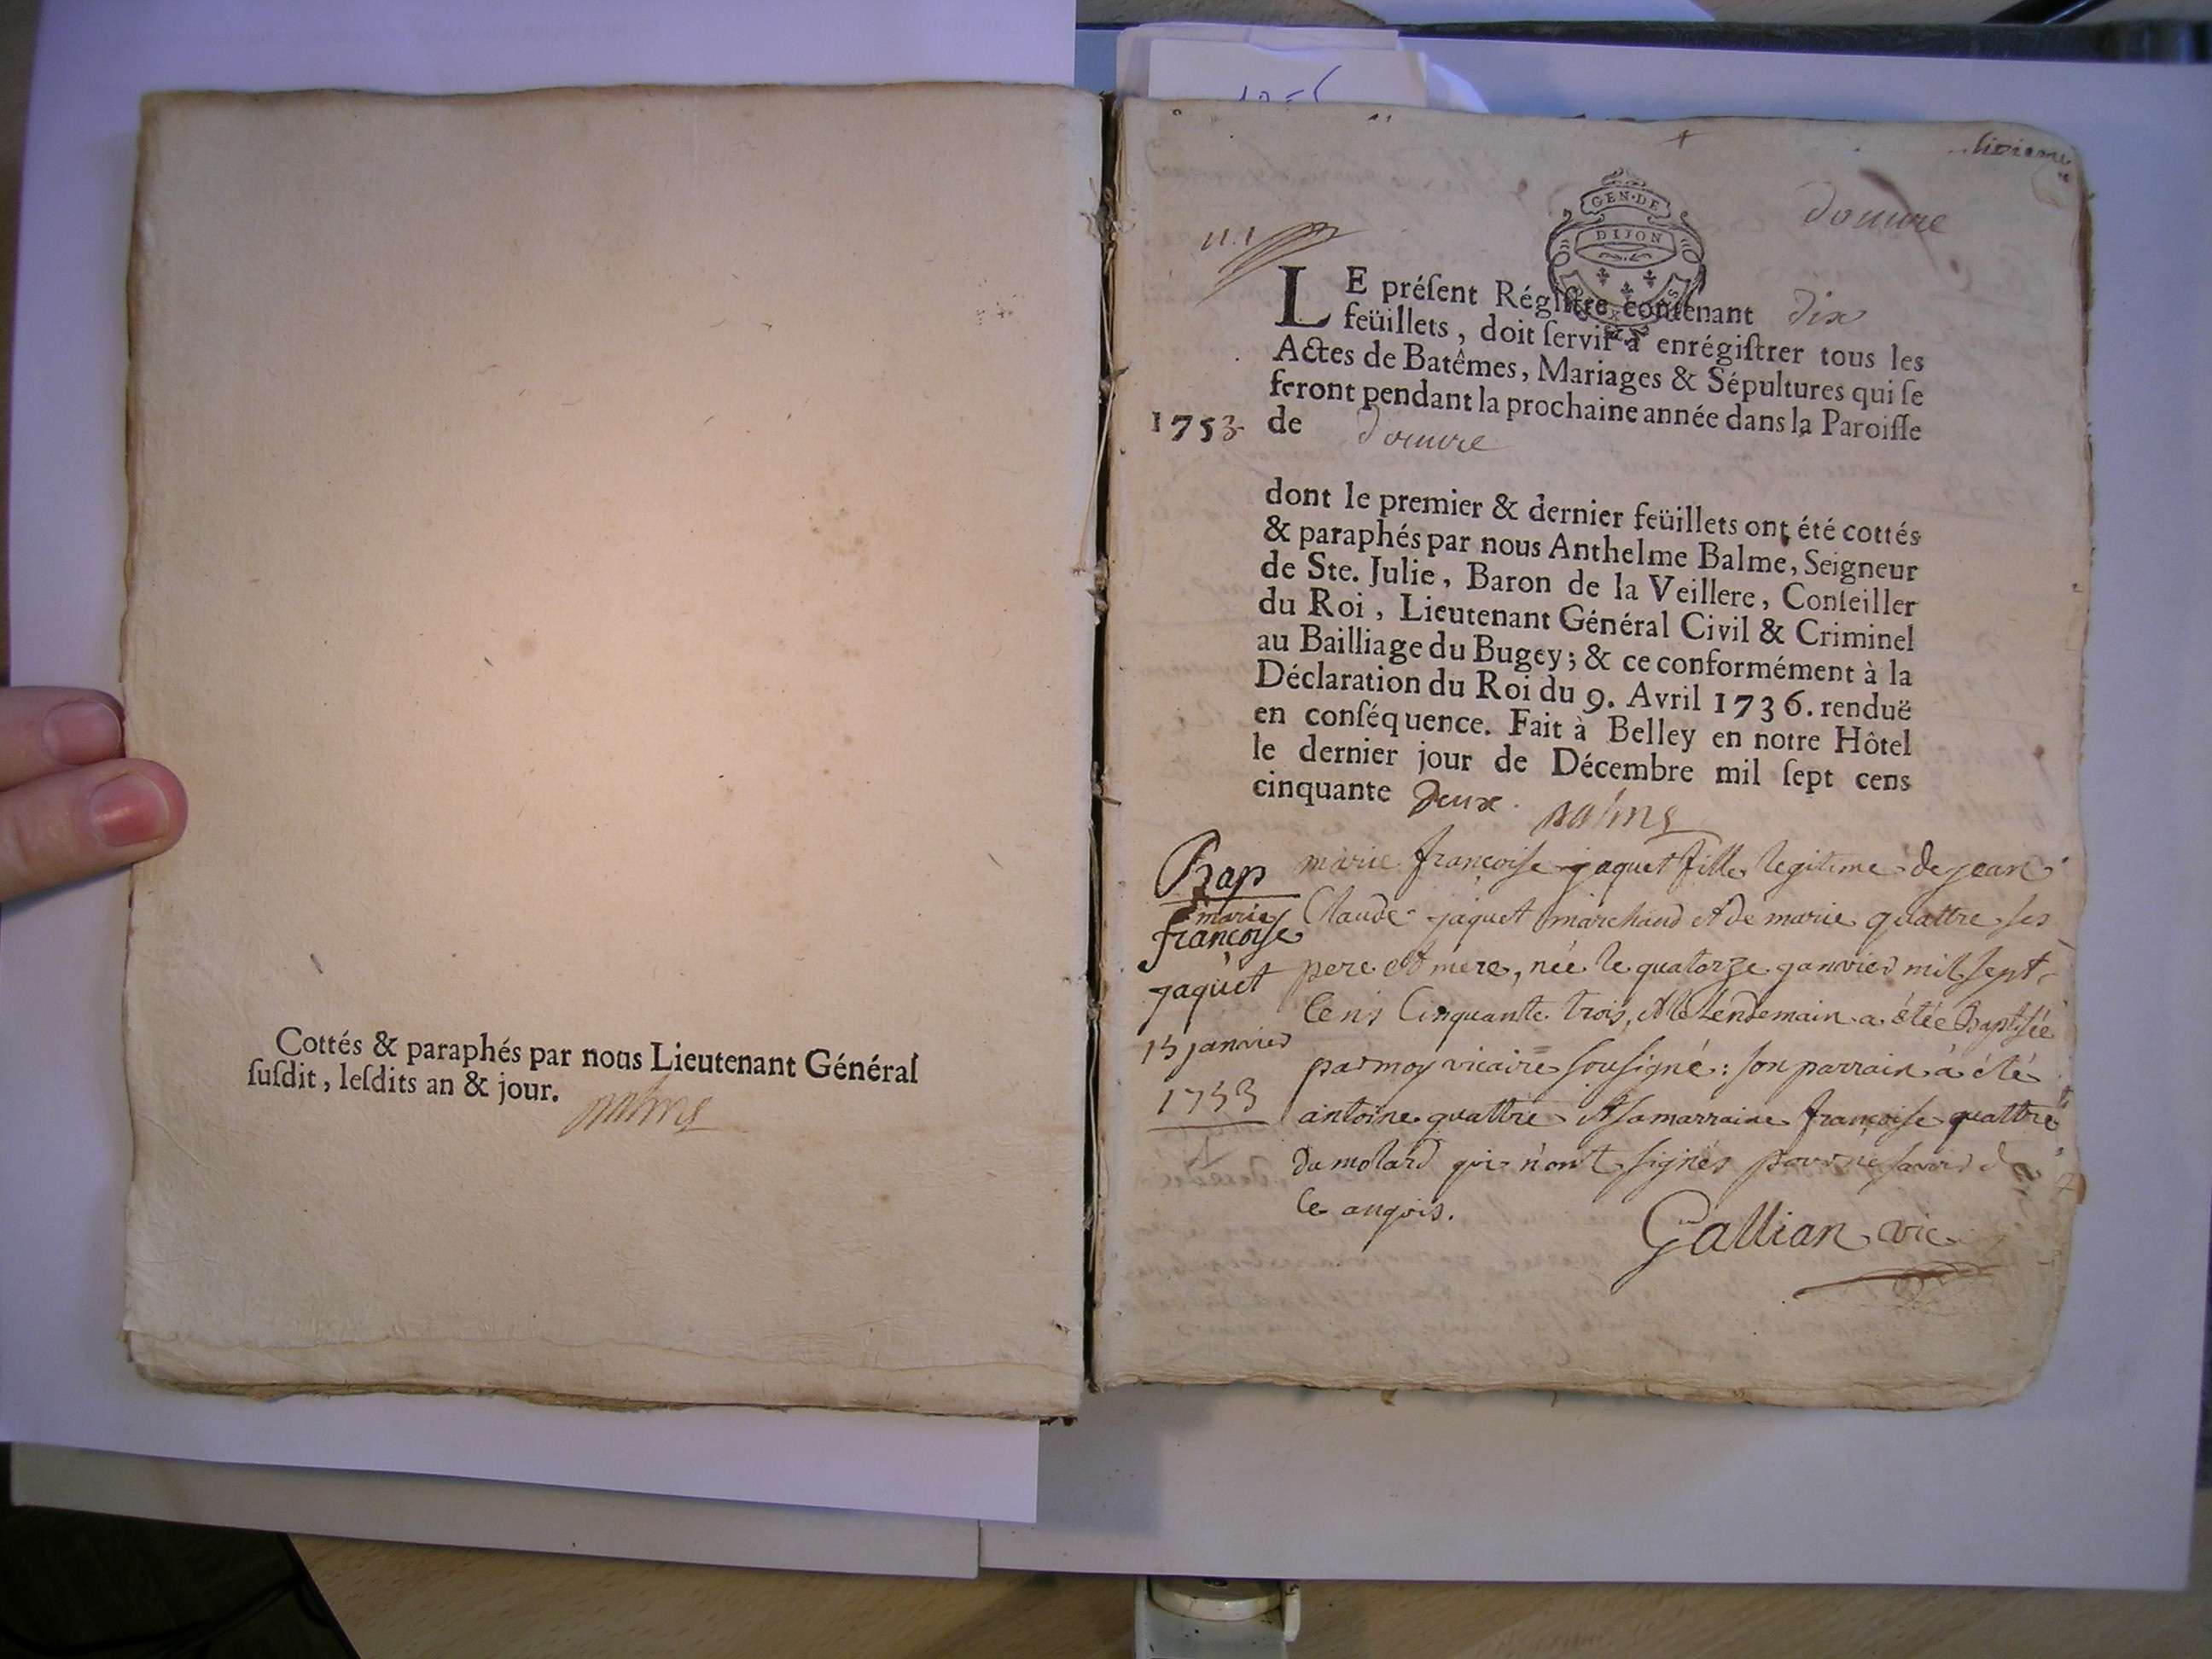 Cottés & paraphés par nous Lieutenant Général
ſuſdit, leſdits an & jour.
Balme
douvre
GEN·DE
DIJON
LE préſent Régiſtre contenant dix
feüillets, doit ſervir à enrégiſtrer tous les
Actes de Batêmes, Mariages & Sépultures qui ſe
feront pendant la prochaine année dans la Paroiſſe
1753 de douvre
dont le premier & dernier feüillets ont été cottés
& paraphés par nous Anthelme Balme, Seigneur
de Ste. Julie, Baron de la Veillere, Conſeiller
du Roi, Lieutenant Général Civil & Criminel
au Bailliage du Bugey; & ce conformément à la
Déclaration du Roi du 9. Avril 1736. renduë
en conſéquence. Fait à Belley en notre Hôtel
le dernier jour de Décembre mil ſept cens
cinquante deux. Balme
Bap
marie
françoise
jaquet
15 janvier
1753
marie françoise jaquet fille legitime de jean
Claude jaquet marchand et de marie quattre ses
pere et mere, née le quatorze janvier mil sept
cens cinquante trois, et le lendemain a étée baptisée
par moy vicaire sousigné: son parrain à été
antoine quattre et sa marraine françoise quattre
du molard qui n'ont signés pour ne savoir de
ce enquis.
Gallian vic